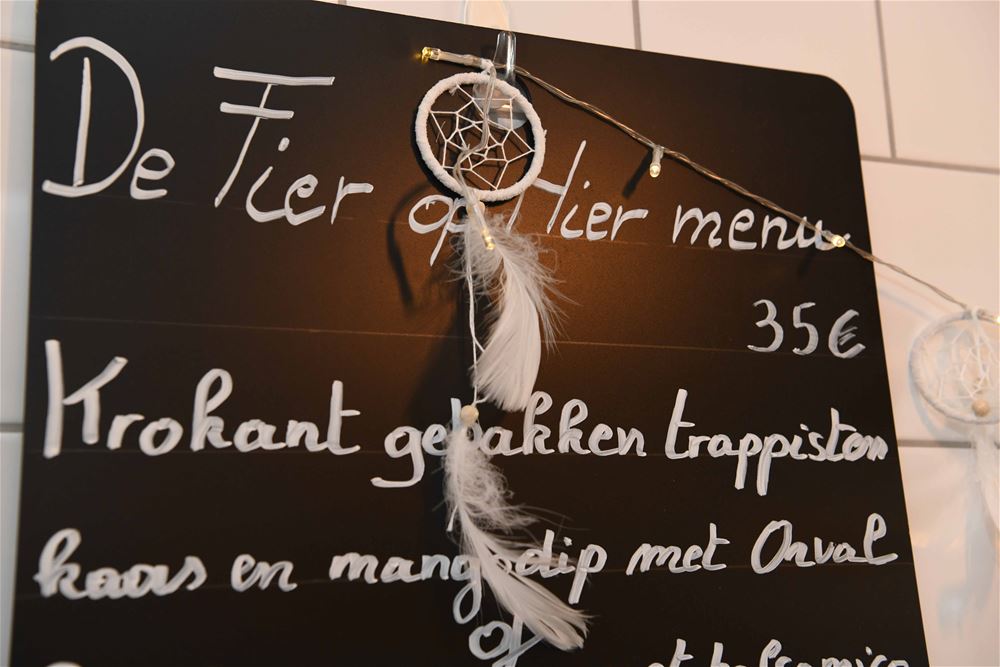 De Fier op Hier menu
35€
Krokant gebakken trappisten
kaas en mangodip met Orval
of